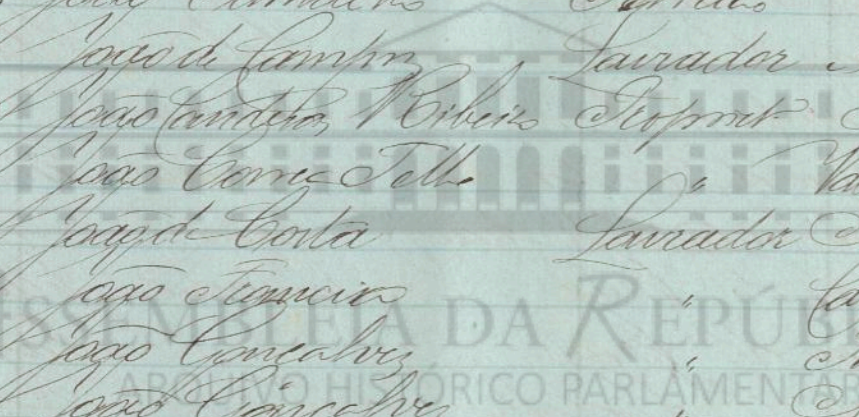 João de Campos Lavrador
João Candeias Ribeiro Propriet.º
João Correa Telles "
João da Costa Lavrador
João Francisco "
João Gonçalves "
João Gonçalves "
ASSEMBLEIA DA REPÚBL
ARQUIVO HISTÓRICO PARLAMENTAR